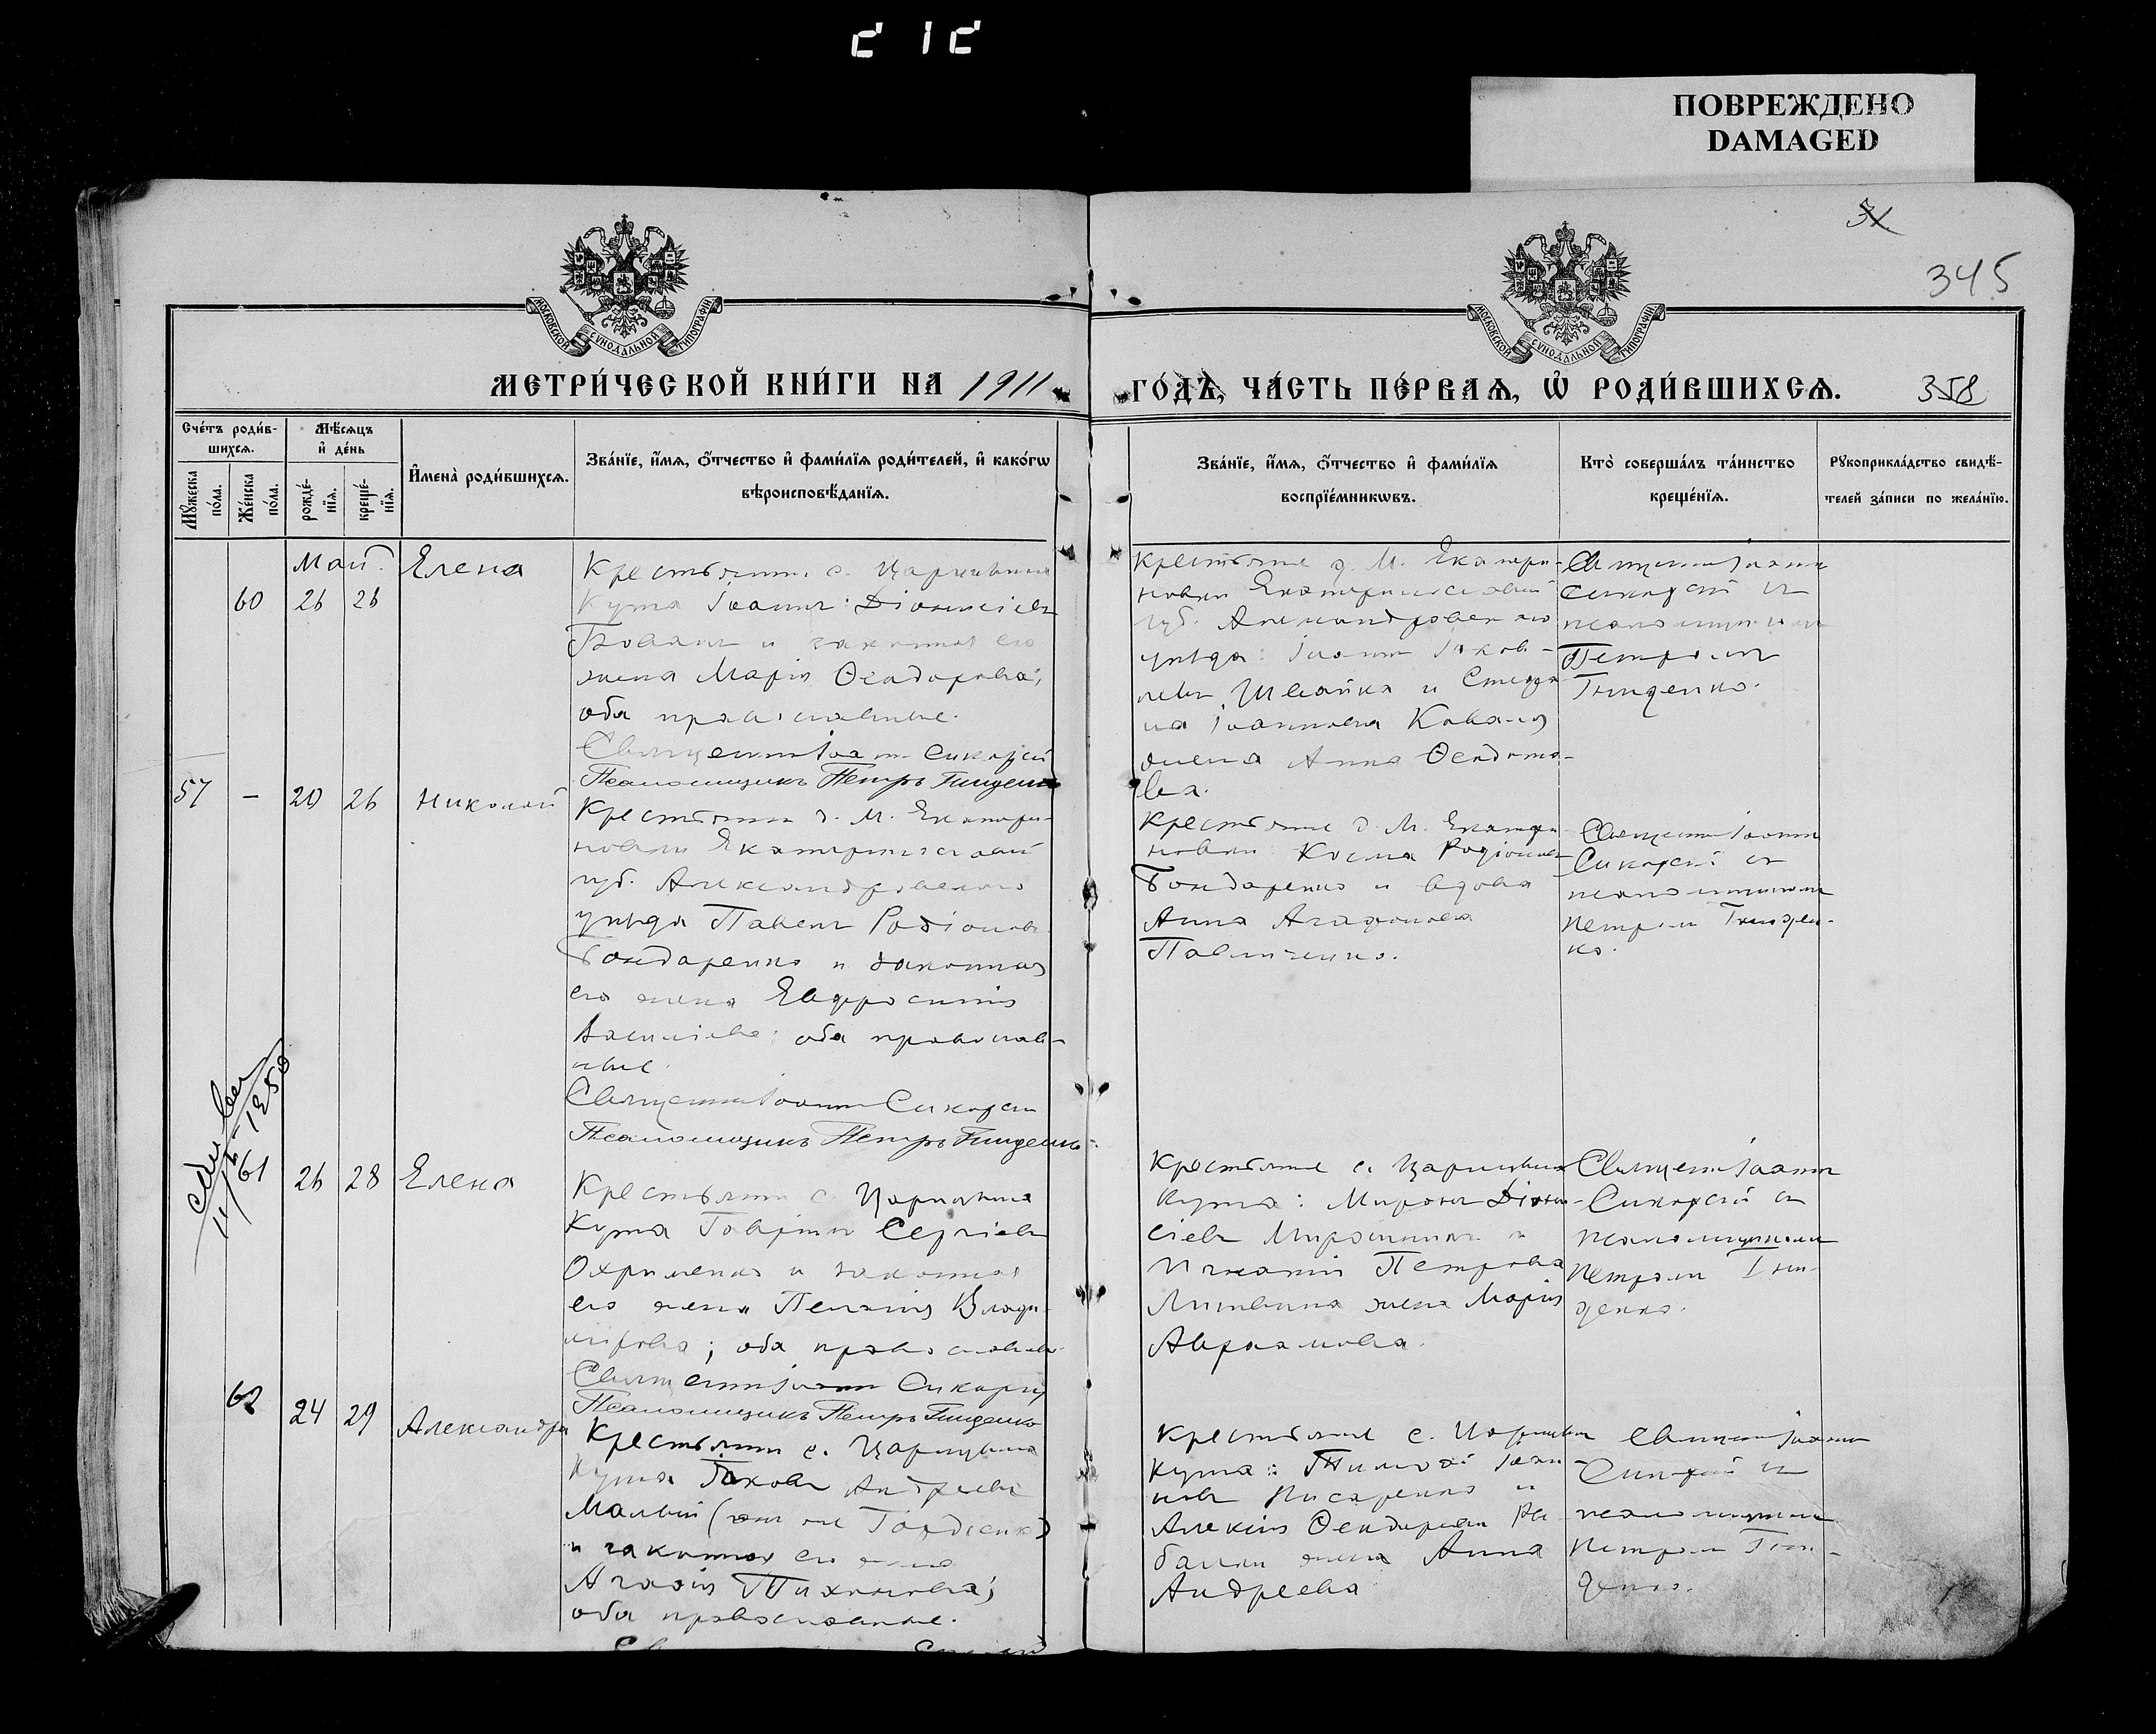 212
ПОВРЕЖДЕНО
DAMAGED
345
МОСКОВСКОЙ СѴНОДАЛЬНОЙ ТИПОГРАФІИ
МОСКОВСКОЙ СѴНОДАЛЬНОЙ ТИПОГРАФІИ
МЕТРИ́ЧЕСКОЙ КНИ́ГИ НА 1911
ГО́ДЪ, ЧА́СТЬ ПЕ́РВАѦ, Ѡ҆ РОДИ́ВШИХСѦ.
358
Сче́тъ роди́в-
шихсѧ.
Мꙋ́жеска
по́ла.
Же́нска
по́ла.
Мѣ́сѧцъ
и҆ де́нь
рожде́-
нїѧ.
креще́-
нїѧ.
И҆мена̀ роди́вшихсѧ.
Зва́нїе, и҆́мѧ, ѻ҆́тчество и҆ фами́лїѧ роди́телей, и҆ како́гѡ
вѣроисповѣ́данїѧ.
Зва́нїе, и҆́мѧ, ѻ҆́тчество и҆ фами́лїѧ
воспрїе́мникѡвъ.
Кто̀ соверша́лъ та́инство
креще́нїѧ.
Рꙋкоприкла́дство свидѣ́-
телей за́писи по жела́нїю.
Май.
60 26 26
Елена
Крестьянинъ с. Царицына
Кута Іоаннъ Діонисіевъ
и законная его
жена Марія Ѳеодорова;
оба православные.
Священникъ Іоаннъ Сикорскій
Псаломщикъ Петръ Гнищенко
Крестьяне д. М. Екатери-
новки Екатеринославской
губ. Александровскаго
уѣзда: Іоаннъ Іаков-
левъ Швайка и Стефа
на Іоаннова Коваля
жена Анна Ѳеодото-
ва.
Священникъ Іоаннъ
Сикорскій съ
псаломщикомъ
Петромъ
Гнищенко.
57 – 20 26
Николай
Крестьянинъ д. М. Екатери-
новки Екатеринославской
губ. Александровскаго
уѣзда Павелъ Родіоновъ
Бондаренко и законная
его жена Евфросинія
Василіева; оба православ-
ные.
Священникъ Іоаннъ Сикорскій
Псаломщикъ Петръ Гнищенко.
Крестьяне д. М. Екатери-
новки Косма Родіоновъ
Бондаренко и вдова
Анна Агафонова
Павличенко.
Священникъ Іоаннъ
Сикорскій съ
псаломщикомъ
Петромъ Гнищен-
ко.
61 26 28
Елена
Крестьянинъ с. Царицына
Кута Гавріилъ Сергіевъ
Охрименко и законная
его жена Пелагія Влади-
мірова; оба православные.
Священникъ Іоаннъ Сикорскій
Псаломщикъ Петръ Гнищенко
Крестьяне с. Царицына
Кута: Миронъ Діони-
сіевъ и
Игнатія Петрова
Литвина жена Марія
Авраамова.
Священникъ Іоаннъ
Сикорскій съ
псаломщикомъ
Петромъ Гни-
щенко.
62 24 29
Александра
Крестьянинъ с. Царицына
Кута Іаковъ Андреевъ
Малый (онъ же Гордіенко)
и законная его жена
Агафія Тихонова;
оба православные.
Крестьяне с. Царицына
Кута: Тимофей Іоан-
новъ Писаренко и
Алексія Ѳеодорова Ры-
балки жена Анна
Андреева
Священникъ Іоаннъ
Сикорскій съ
псаломщикомъ
Петромъ Гни-
щенко.